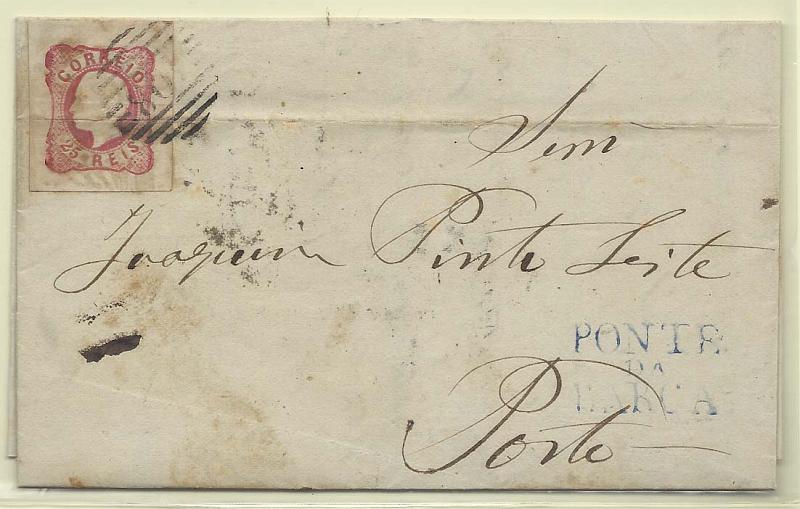 CORREIO
25 REIS
Snr
Joaquim Pinto Leite
PONTE
DA
BARCA
Porto